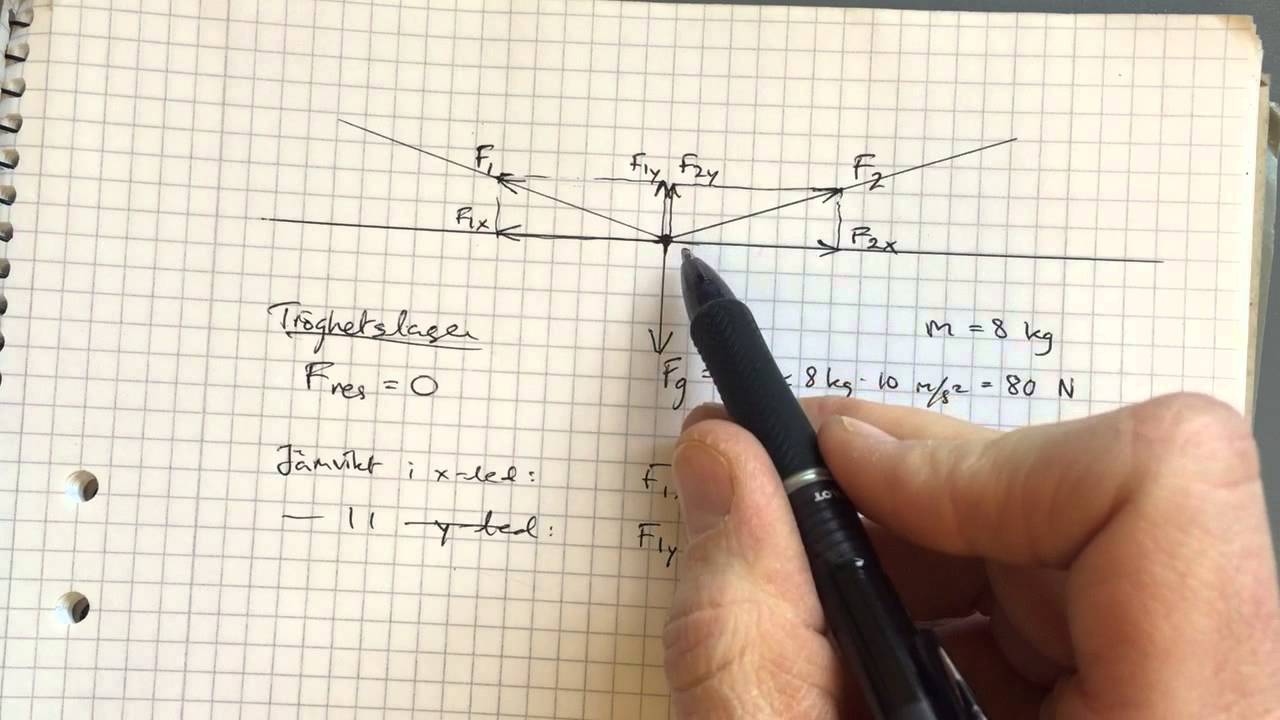 F₁ F₁y F₂y F₂
F₁x F₂x
Tröghetslagen
m = 8 kg
Fres = 0
Fg = = 8 kg · 10 m/s² = 80 N
Jämvikt i x-led: F₁
— 11 — y-led: F₁y